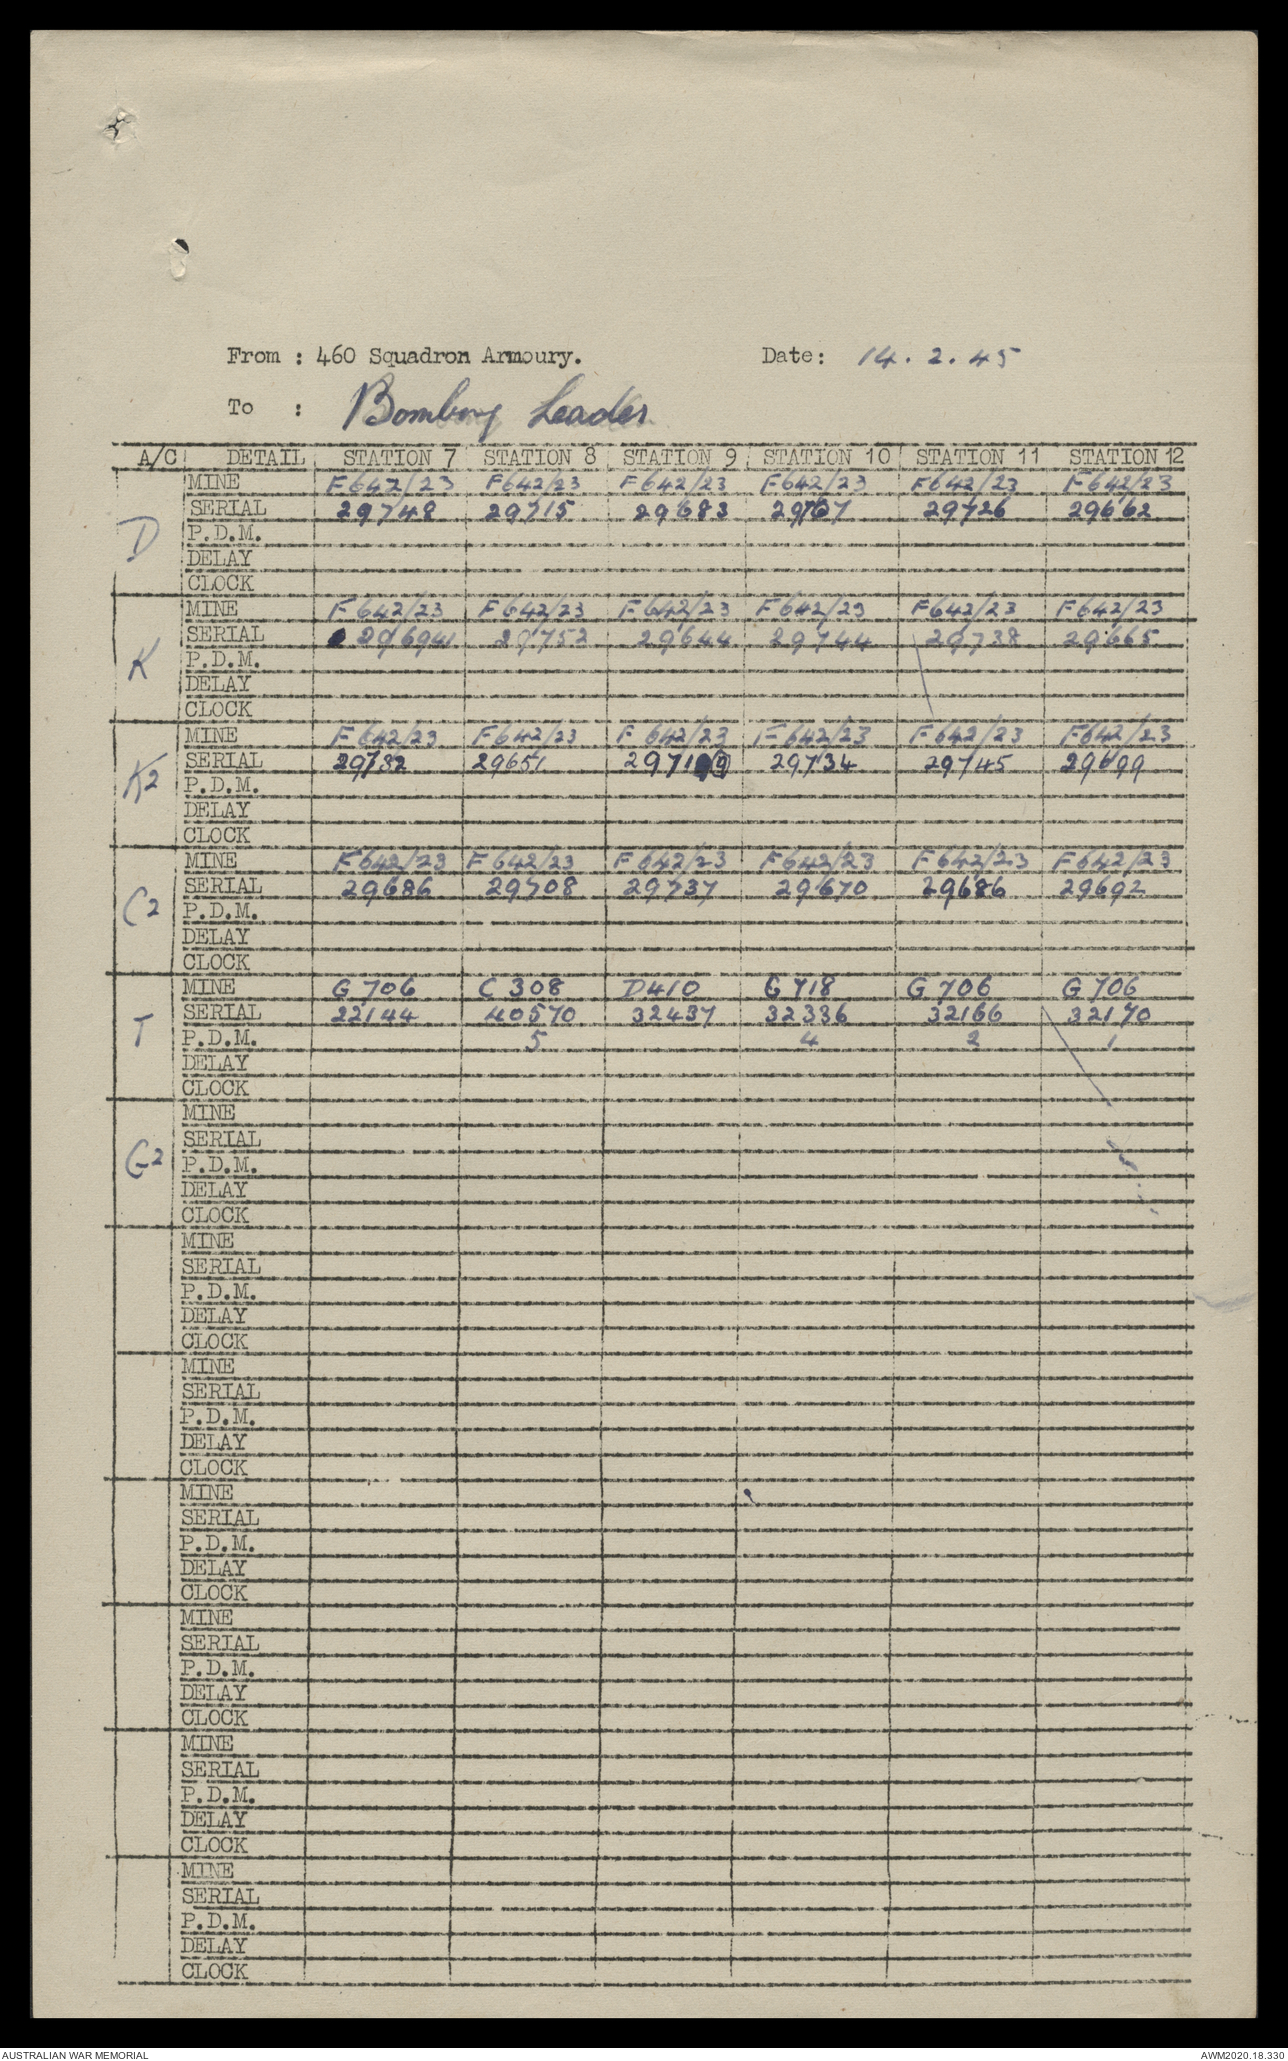 From : 460 Squadron Armoury. Date: 14. 2. 45
To : Bombing Leader
A/C DETAIL STATION 7 STATION 8 STATION 9 STATION 10 STATION 11 STATION 12
D
MINE F642/23 F642/23 F642/23 F642/23 F642/23 F642/23
SERIAL 29748 29715 29683 29727 29726 29662
P.D.M.
DELAY
CLOCK
K
MINE F642/23 F642/23 F642/23 F642/23 F642/23 F642/23
SERIAL 29752 29644 29744 29738 29665
P.D.M.
DELAY
CLOCK
K2
MINE F642/23 F642/23 F642/23 F642/23 F642/23 F642/23
SERIAL 29732 29651 29734 29745 29699
P.D.M.
DELAY
CLOCK
C2
MINE F642/23 F642/23 F642/23 F642/23 F642/23 F642/23
SERIAL 29686 29708 29737 29670 29686 29692
P.D.M.
DELAY
CLOCK
T
MINE G706 C308 D410 G718 G706 G706
SERIAL 22144 40570 32437 32336 32166 32170
P.D.M. 5 4 2 1
DELAY
CLOCK
G2
MINE
SERIAL
P.D.M.
DELAY
CLOCK
MINE
SERIAL
P.D.M.
DELAY
CLOCK
MINE
SERIAL
P.D.M.
DELAY
CLOCK
MINE
SERIAL
P.D.M.
DELAY
CLOCK
MINE
SERIAL
P.D.M.
DELAY
CLOCK
MINE
SERIAL
P.D.M.
DELAY
CLOCK
MINE
SERIAL
P.D.M.
DELAY
CLOCK
AUSTRALIAN WAR MEMORIAL AWM2020.18.330